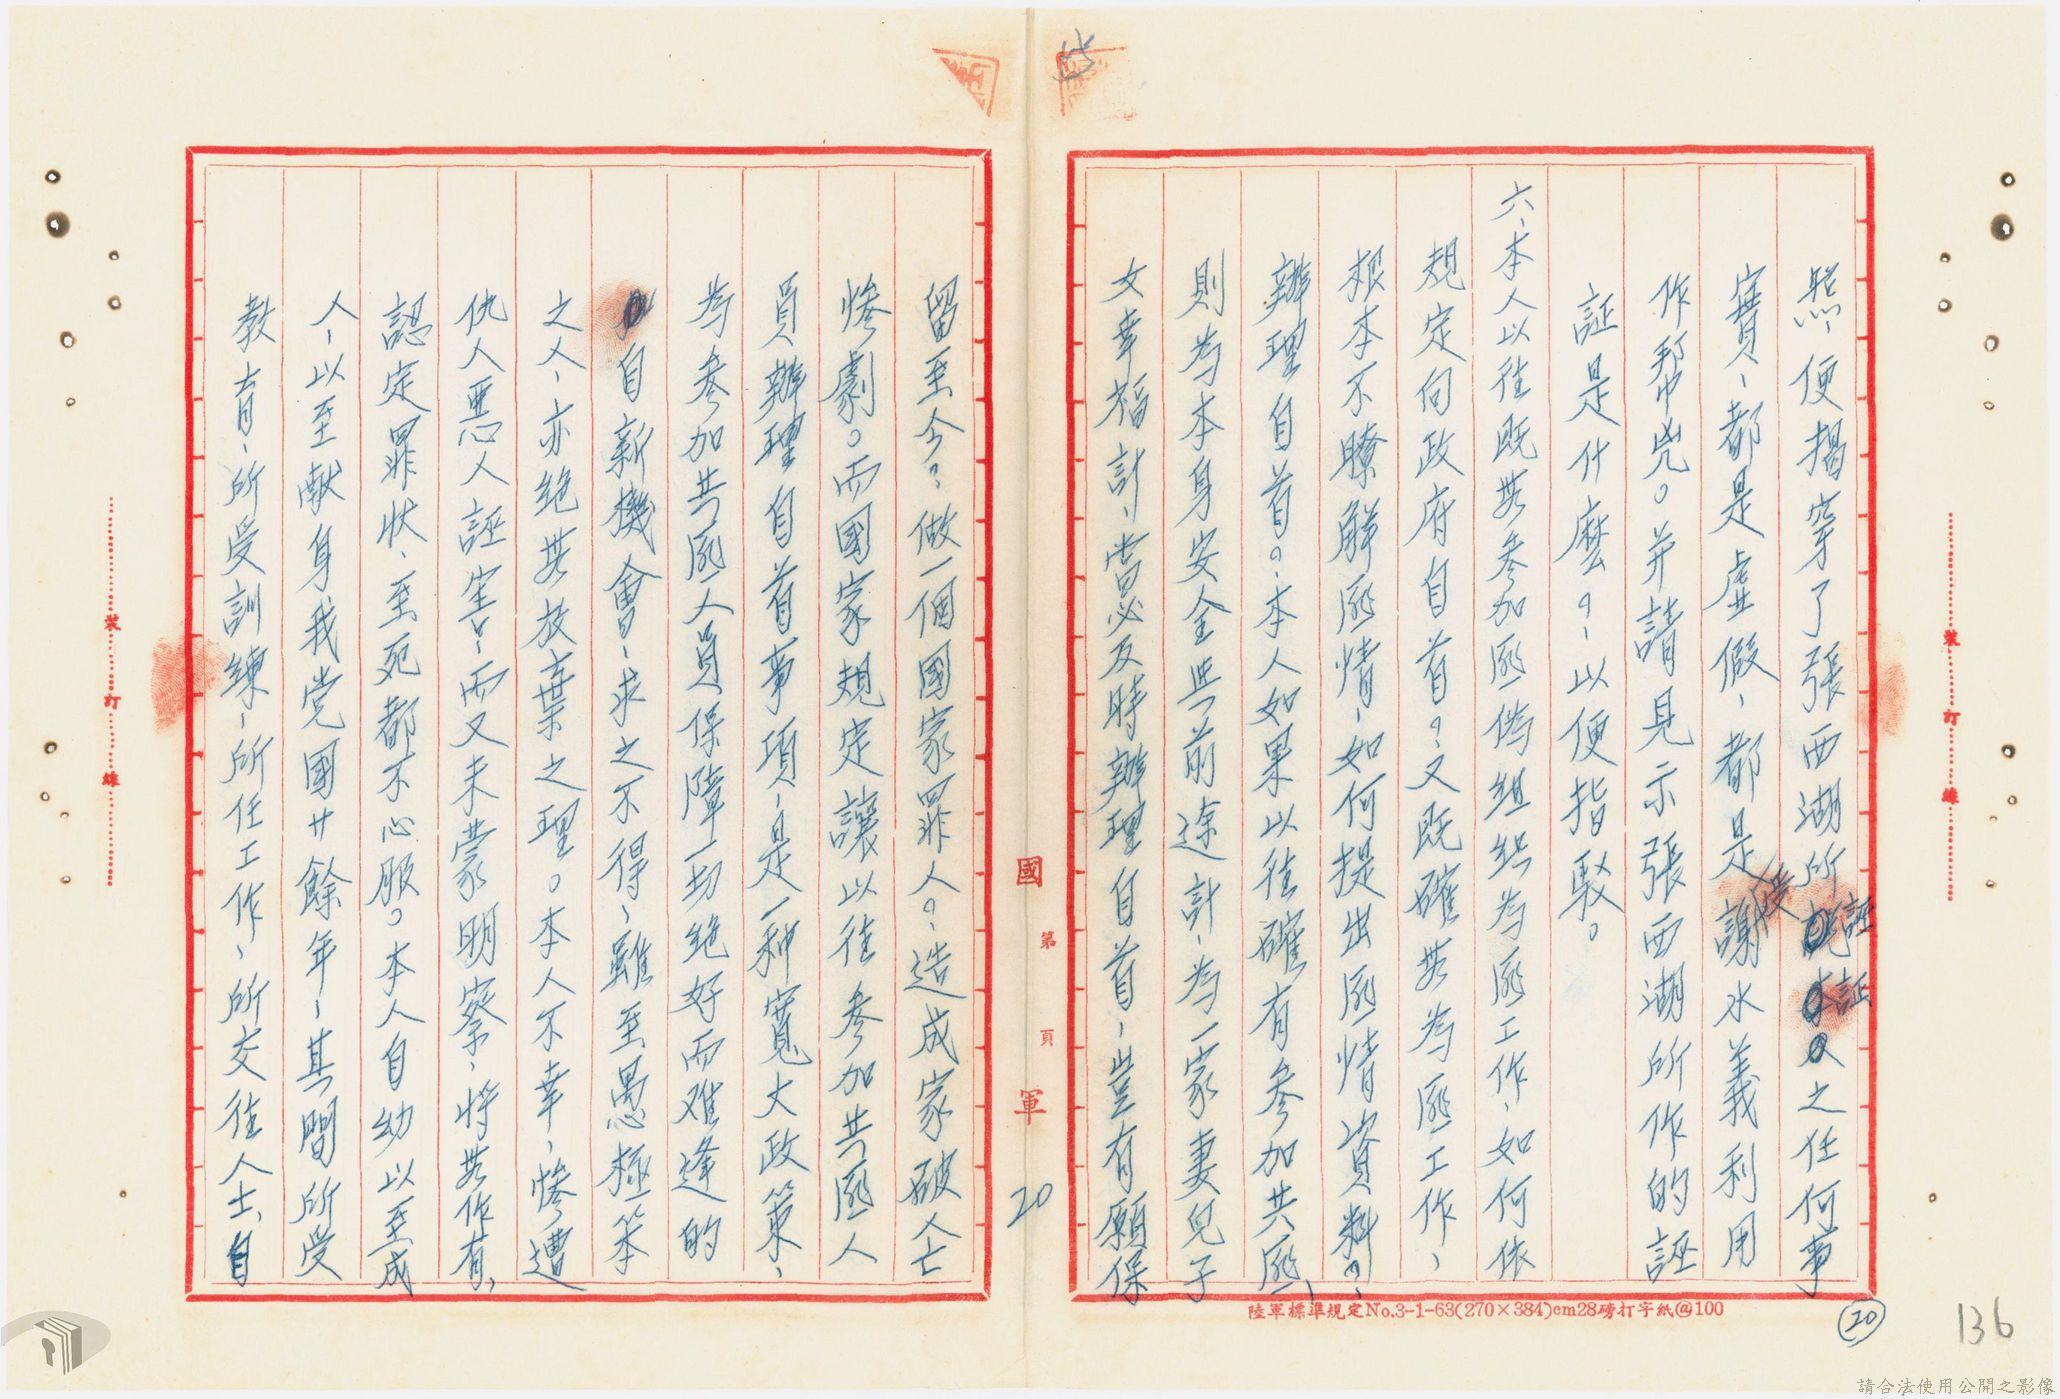 照、便揭穿了張西湖所誣証之任何事
實、都是虛假、都是受謝水義利用
作幫兇。并請見示張西湖所作的誣
証是什麼？、以便指駁。
六、本人以往既無參加匪偽組織為匪工作、如何依
規定向政府自首？又既確無為匪工作、
根本不瞭解匪情、如何提出匪情資料？、
辦理自首？、本人如果以往確有參加共匪、
則為本身安全與前途計、為一家妻兒子
女幸福計、當必及時辦理自首、豈有願保
留至今？、做一個國家罪人？、造成家破人亡
慘劇。而國家規定讓以往參加共匪人
員辦理自首事項、是一種寬大政策、
為參加共匪人員保障一切絕好而难逢的
自新機會、求之不得、雖至愚極笨
之人、亦絕無放棄之理。本人不幸、慘遭
仇人惡人誣害、而又未蒙明察、將無作有、
認定罪狀、至死都不心服。本人自幼以至成
人、以至献身我党國廿餘年、其間所受
教育、所受訓練、所任工作、所交往人士、自
國軍
第 頁
20
裝 訂 線
裝 訂 線
陸軍標準規定No.3-1-63(270×384)cm28磅打字紙@100
20
136
請合法使用公開之影像